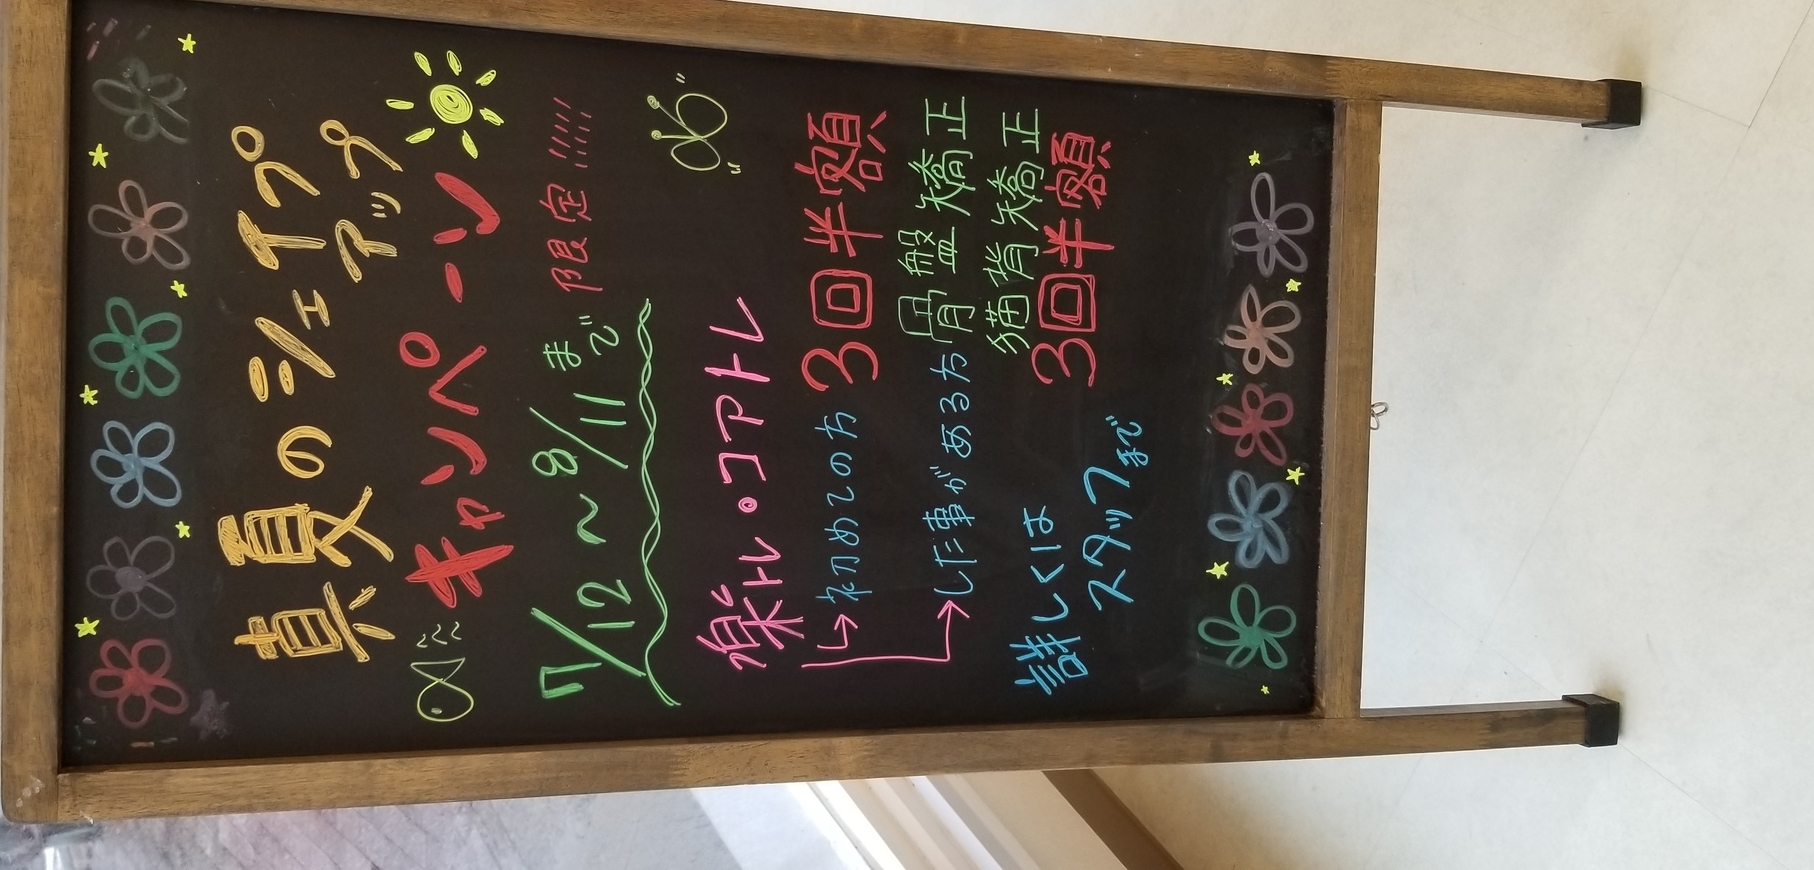 真夏のシェイプ
アップ
キャンペーン
7/12～8/11まで 限定!!!!!
楽トレ・コアトレ
↳初めての方 3回半額
→した事がある方 骨盤矯正
猫背矯正
3回半額
詳しくは
スタッフまで